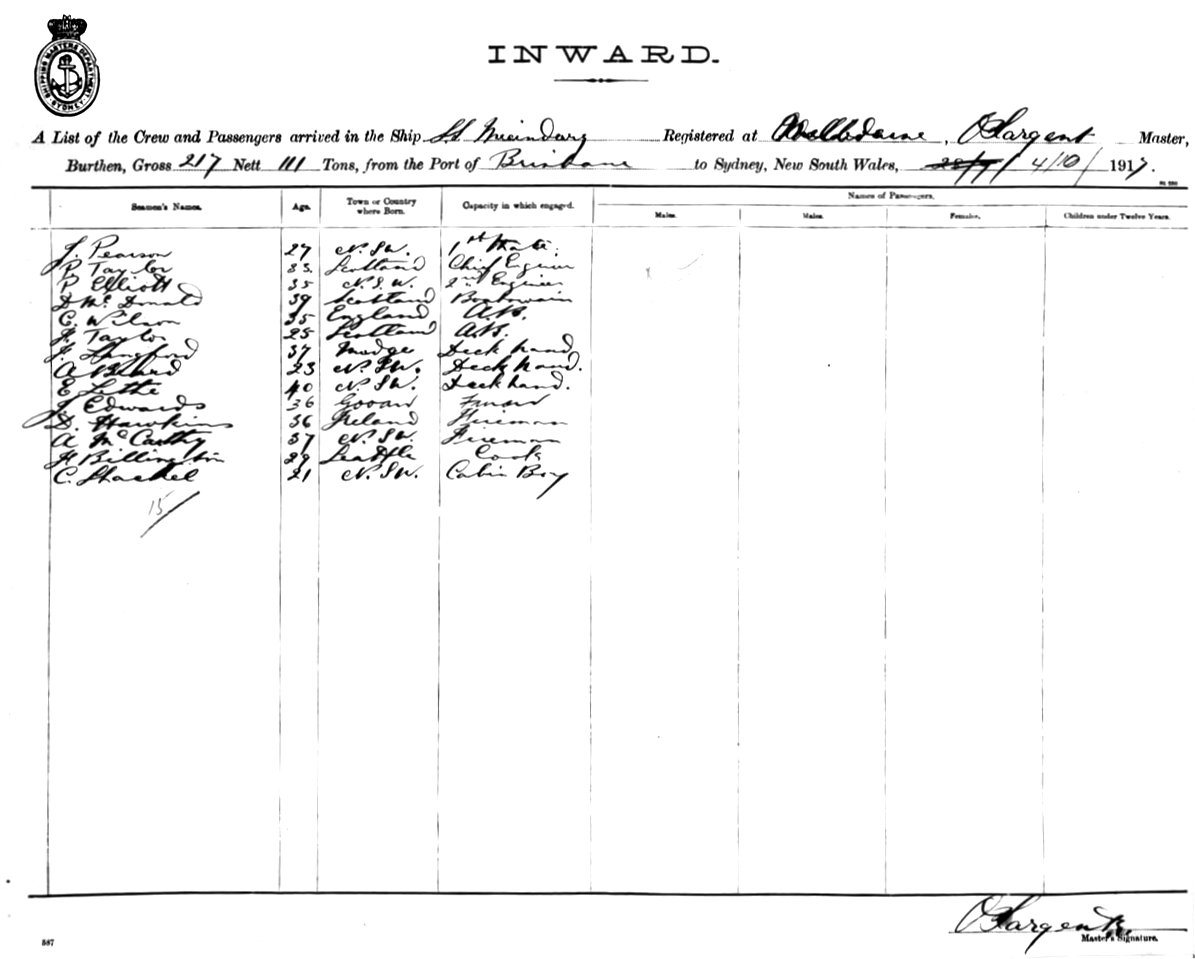 SHIPPING MASTERS DEPARTMENT SYDNEY
INWARD.
A List of the Crew and Passengers arrived in the Ship S.S. Registered at , O Sargent Master,
Burthen, Gross 217 Nett 111 Tons, from the Port of Brisbane to Sydney, New South Wales, 4/10/1917.
Seamen's Names. Age. Town or Country where Born. Capacity in which engaged. Names of Passengers.
Males. Males. Females. Children under Twelve Years.
J. Pearson 27 N.S.W. 1st Mate.
P Taylor Scotland Chief Engineer
P Elliott 35 N.S.W. 2nd Engineer
D Mc Donald 39 Scotland Boatswain
C. Wilson 35 England A.B.
J. Taylor 25 Scotland A.B.
J. Langford 37 Deck hand
A Bland 23 N.S.W. Deck hand.
E Lethe 40 N.S.W. Deck hand.
J. Edwards 36
D. Hawkins 36 Ireland Fireman
A McCarthy 37 N.S.W. Fireman
H Billington 29 Seattle Cook
C. 21 N.S.W. Cabin Boy
15/
O Sargent
Master's Signature.
587